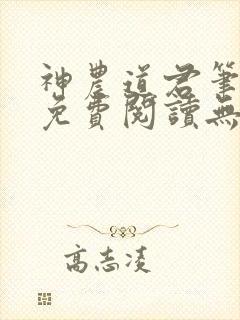 神農道君筆
免費閱讀無
高志凌